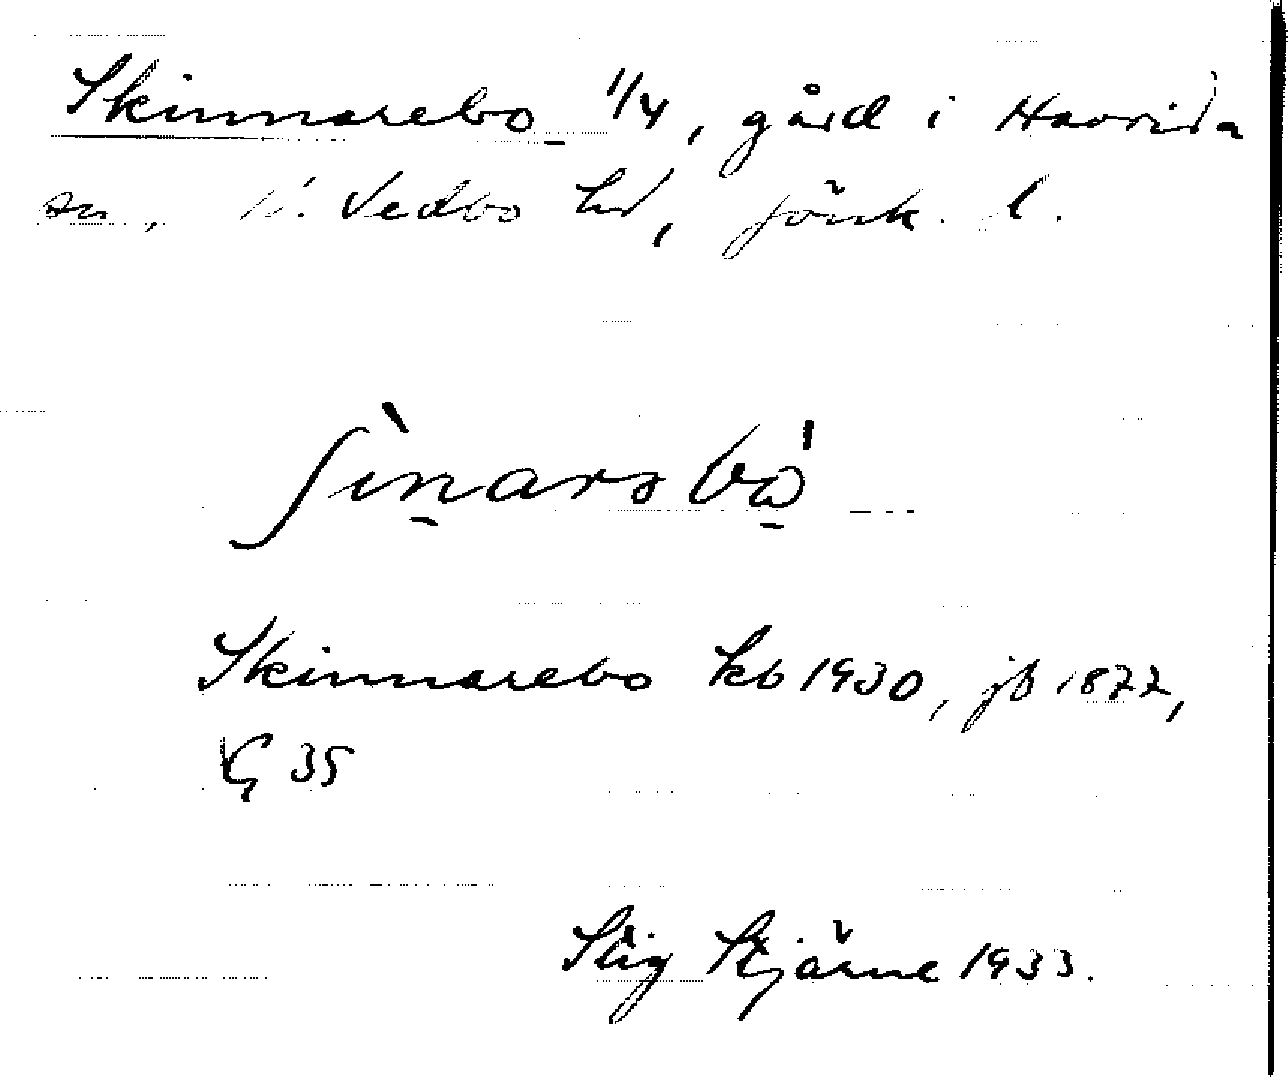 Skinnarebo 1/4, gård i Haurida
sn, N. Vedbo hd, Jönk. l.
ʃìnarsbo̍
Skinnarebo kb 1930, jb 1877,
G 35
Stig Stjärne 1933.